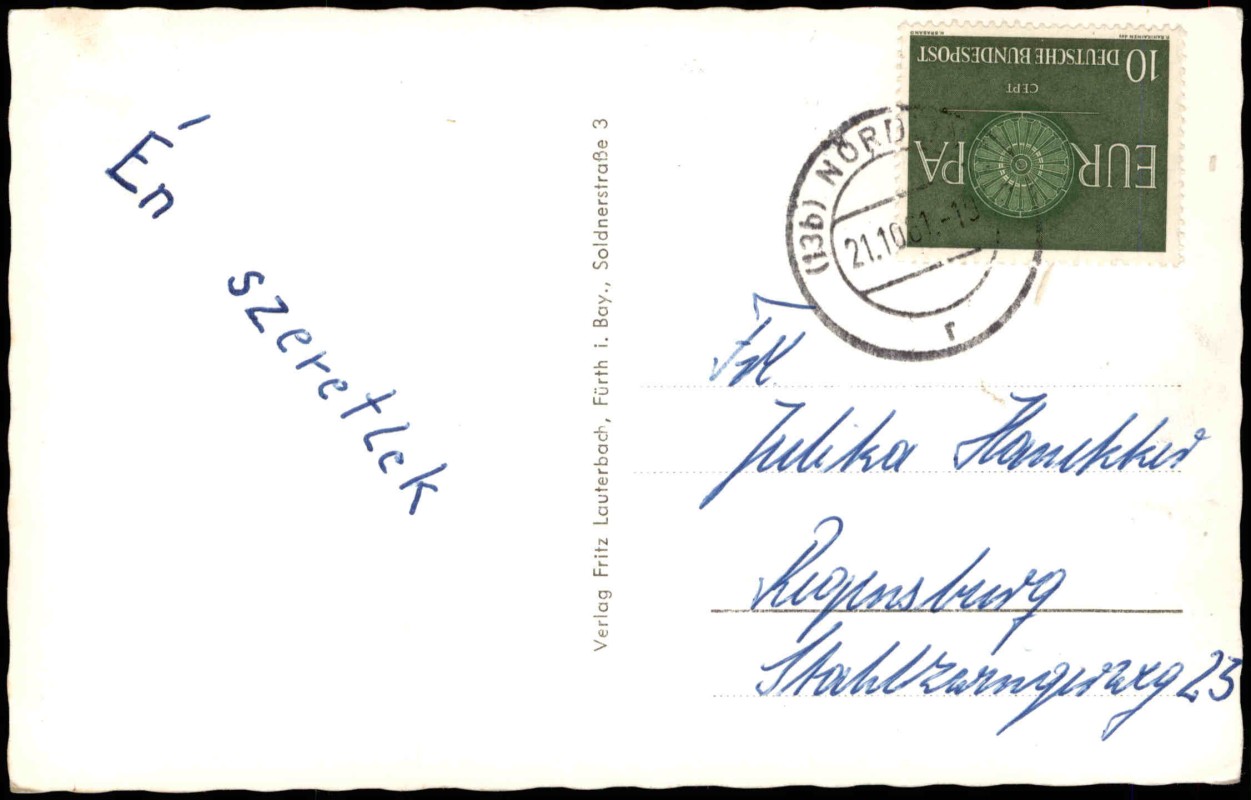 Én
szeretlek
Verlag Fritz Lauterbach, Fürth i. Bay., Soldnerstraße 3
10 DEUTSCHE BUNDESPOST
CEPT
EUROPA
(13b) NÖRD
21.10.61.-19
r
Frl.
Julika
Regensburg
Stahlzwingerweg 23